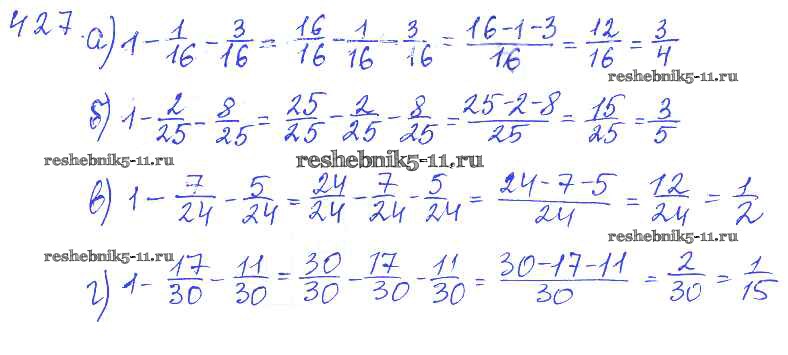 427. а) 1 - 1/16 - 3/16 = 16/16 - 1/16 - 3/16 = (16-1-3)/16 = 12/16 = 3/4
reshebnik5-11.ru
б) 1 - 2/25 - 8/25 = 25/25 - 2/25 - 8/25 = (25-2-8)/25 = 15/25 = 3/5
reshebnik5-11.ru reshebnik5-11.ru
в) 1 - 7/24 - 5/24 = 24/24 - 7/24 - 5/24 = (24-7-5)/24 = 12/24 = 1/2
reshebnik5-11.ru
reshebnik5-11.ru
г) 1 - 17/30 - 11/30 = 30/30 - 17/30 - 11/30 = (30-17-11)/30 = 2/30 = 1/15